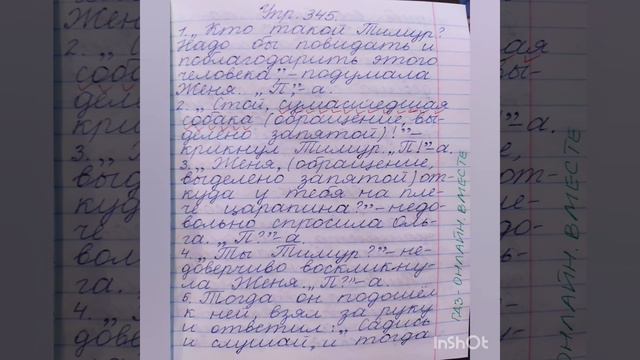 Упр. 345.
1. „Кто такой Тимур?
Надо бы повидать и
поблагодарить этого
человека",-подумала
Женя. „П",-а.
2. „Стой, сумасшедшая
собака (обращение, вы-
делено запятой)!"-
крикнул Тимур. „П!"-а.
3. „Женя, (обращение,
выделено запятой) от-
куда у тебя на пле-
че царапина?"-недо-
вольно спросила Оль-
га. „П?"-а.
4. „Ты Тимур?"-не-
доверчиво воскликну-
ла Женя. „П?"-а.
5. Тогда он подошёл
к ней, взял за руку
и ответил: „Садись
и слушай, и тогда
ГДЗ-ОНЛАЙН. ВМЕСТЕ
InShOt